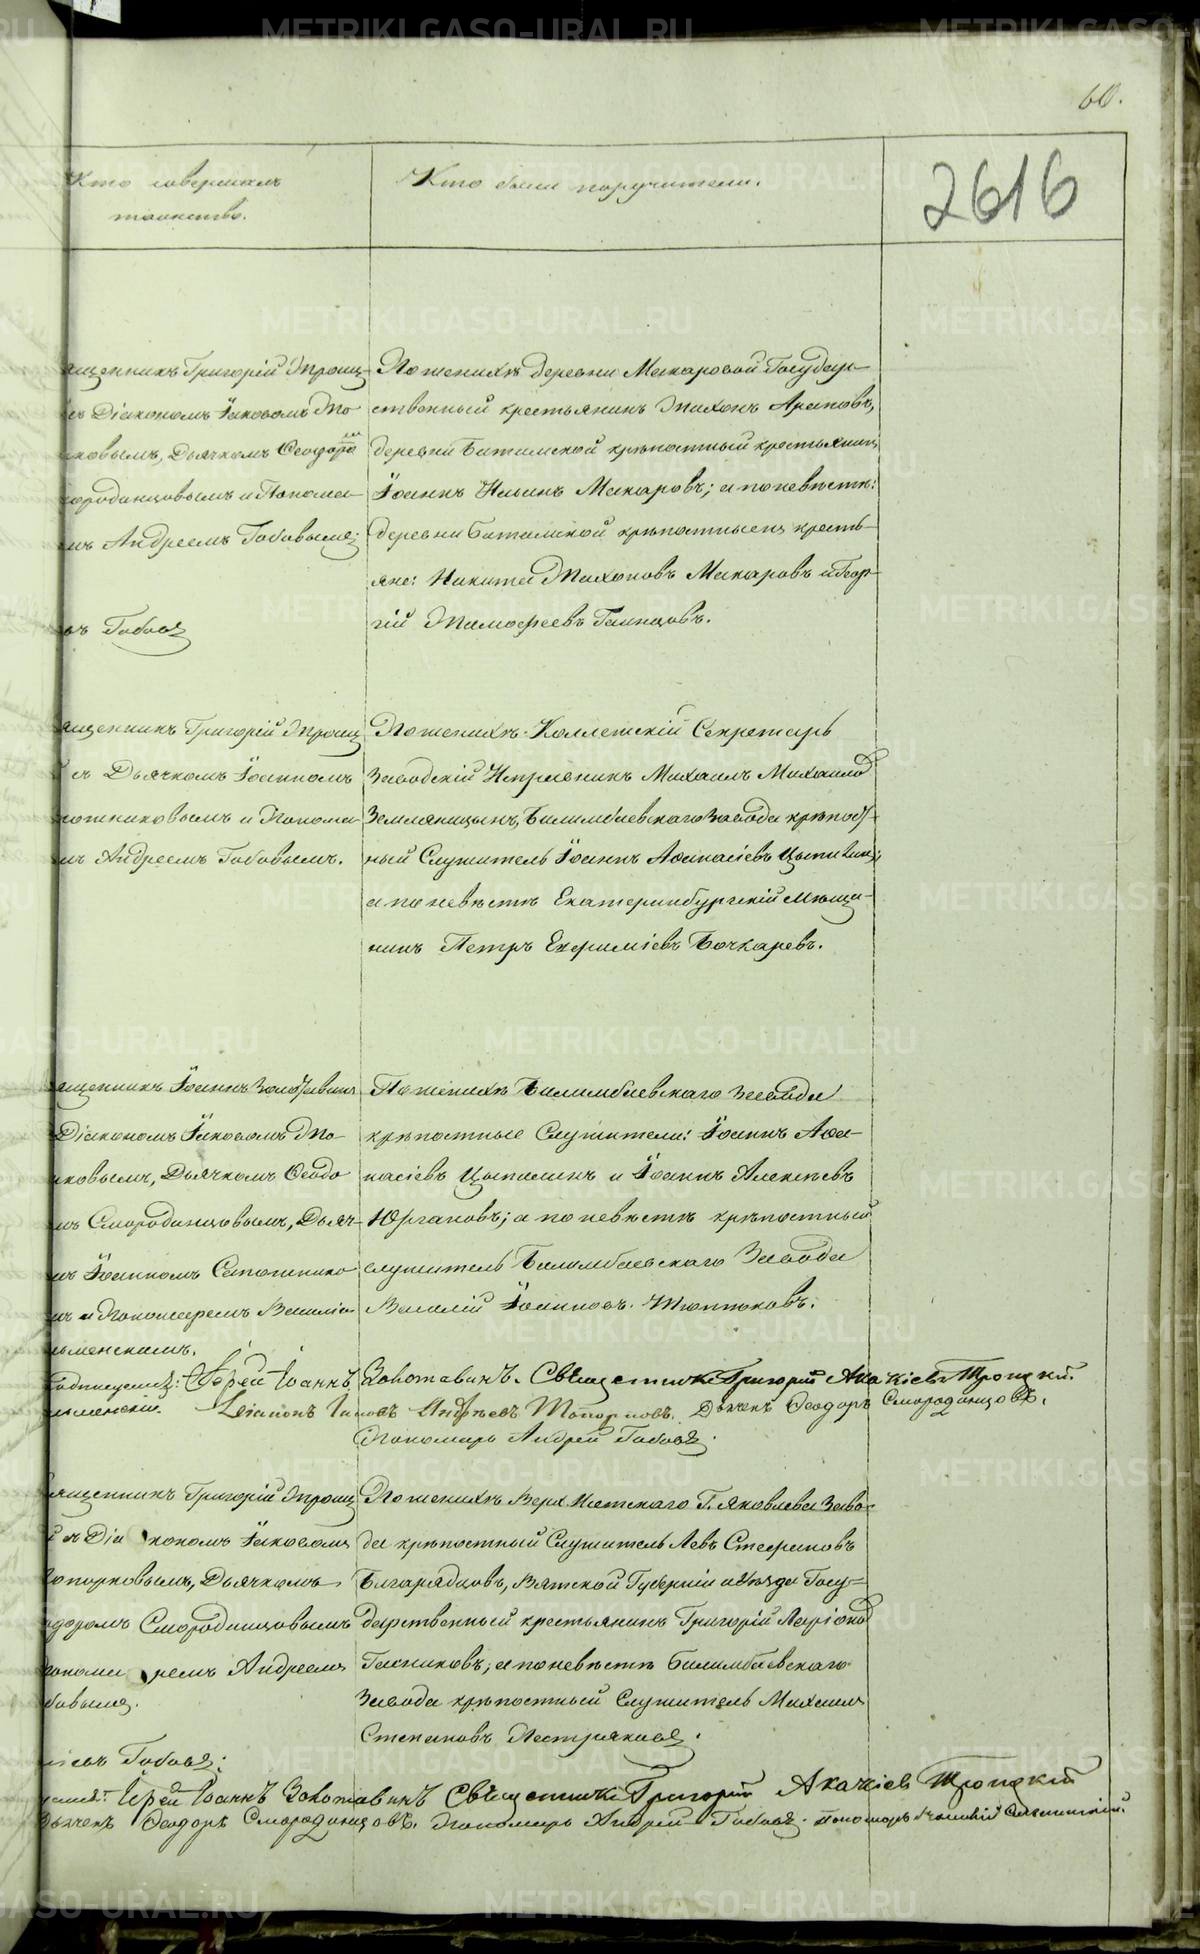 60.
2616
Кто совершалъ
таинство.
Кто были поручители.
ященникъ Григорій Троиц-
съ Діакономъ Іаковомъ То-
ковымъ, Дьячкомъ Ѳеодоро
ородинцовымъ и Понома-
мъ Андреемъ Бабовымъ;
По женихѣ деревни Макаровой Государ-
ственный крестьянинъ Тихонъ Араповъ,
деревни Битимской крѣпостный крестьянинъ
Іоаннъ Ильинъ Макаровъ; а по невѣстѣ:
деревни Битимской крѣпостные кресть-
яне: Никита Тихоновъ Макаровъ и Геор-
гій Тимофеевъ
ященникъ Григорій Троиц
съ Дьячкомъ Іоанномъ
и Понома-
мъ Андреемъ
По женихѣ Коллежскій Секретарь
Заводскій Исправникъ Михаилъ Михаилов
Земляницынъ, Билимбаевскаго завода крѣпост-
ный Служитель Іоаннъ Аѳанасіевъ Цыпилинъ;
а по невѣстѣ Екатеринбургскій мѣща-
нинъ Петръ Ефиміевъ Бочкаревъ.
ященникъ Іоаннъ Золотавинъ
Діакономъ Іаковомъ То-
ковымъ, Дьячкомъ Ѳеодо
мъ Смородинцовымъ, Дьяч-
мъ Іоанномъ
мъ и Пономаремъ Василіе
По женихѣ Билимбаевскаго Завода
крѣпостные Служители: Іоаннъ Аѳа-
насіевъ Цыпилинъ и Іоаннъ Алексѣевъ
Юргановъ; а по невѣстѣ крѣпостный
служитель Билимбаевскаго Завода
Василій Іоанновъ
Іерей Іоаннъ Золотавинъ. Священникъ Григорій Акакіевъ Троицкій.
Діаконъ Андреевъ Топорковъ. Дьячекъ Ѳеодоръ Смородинцовъ.
Пономарь Андрей
ященникъ Григорій Троиц
съ Діакономъ Іаковомъ
опорковымъ, Дьячкомъ
одоромъ Смородинцовымъ
ономаремъ Андреемъ
По женихѣ Верх Исетскаго Г. Яковлева Заво-
да крѣпостный Служитель Левъ Стефановъ
Вятской Губерніи и Уѣзда Госу-
дарственный крестьянинъ Григорій Ларіонов
а по невѣстѣ Билимбаевскаго
Завода крѣпостный Служитель Михаилъ
Степановъ
Іерей Іоаннъ Золотавинъ Священникъ Григорій Акакіевъ Троицкій
Дьячекъ Ѳеодоръ Смородинцовъ. Пономарь Андрей
METRIKI.GASO-URAL.RU